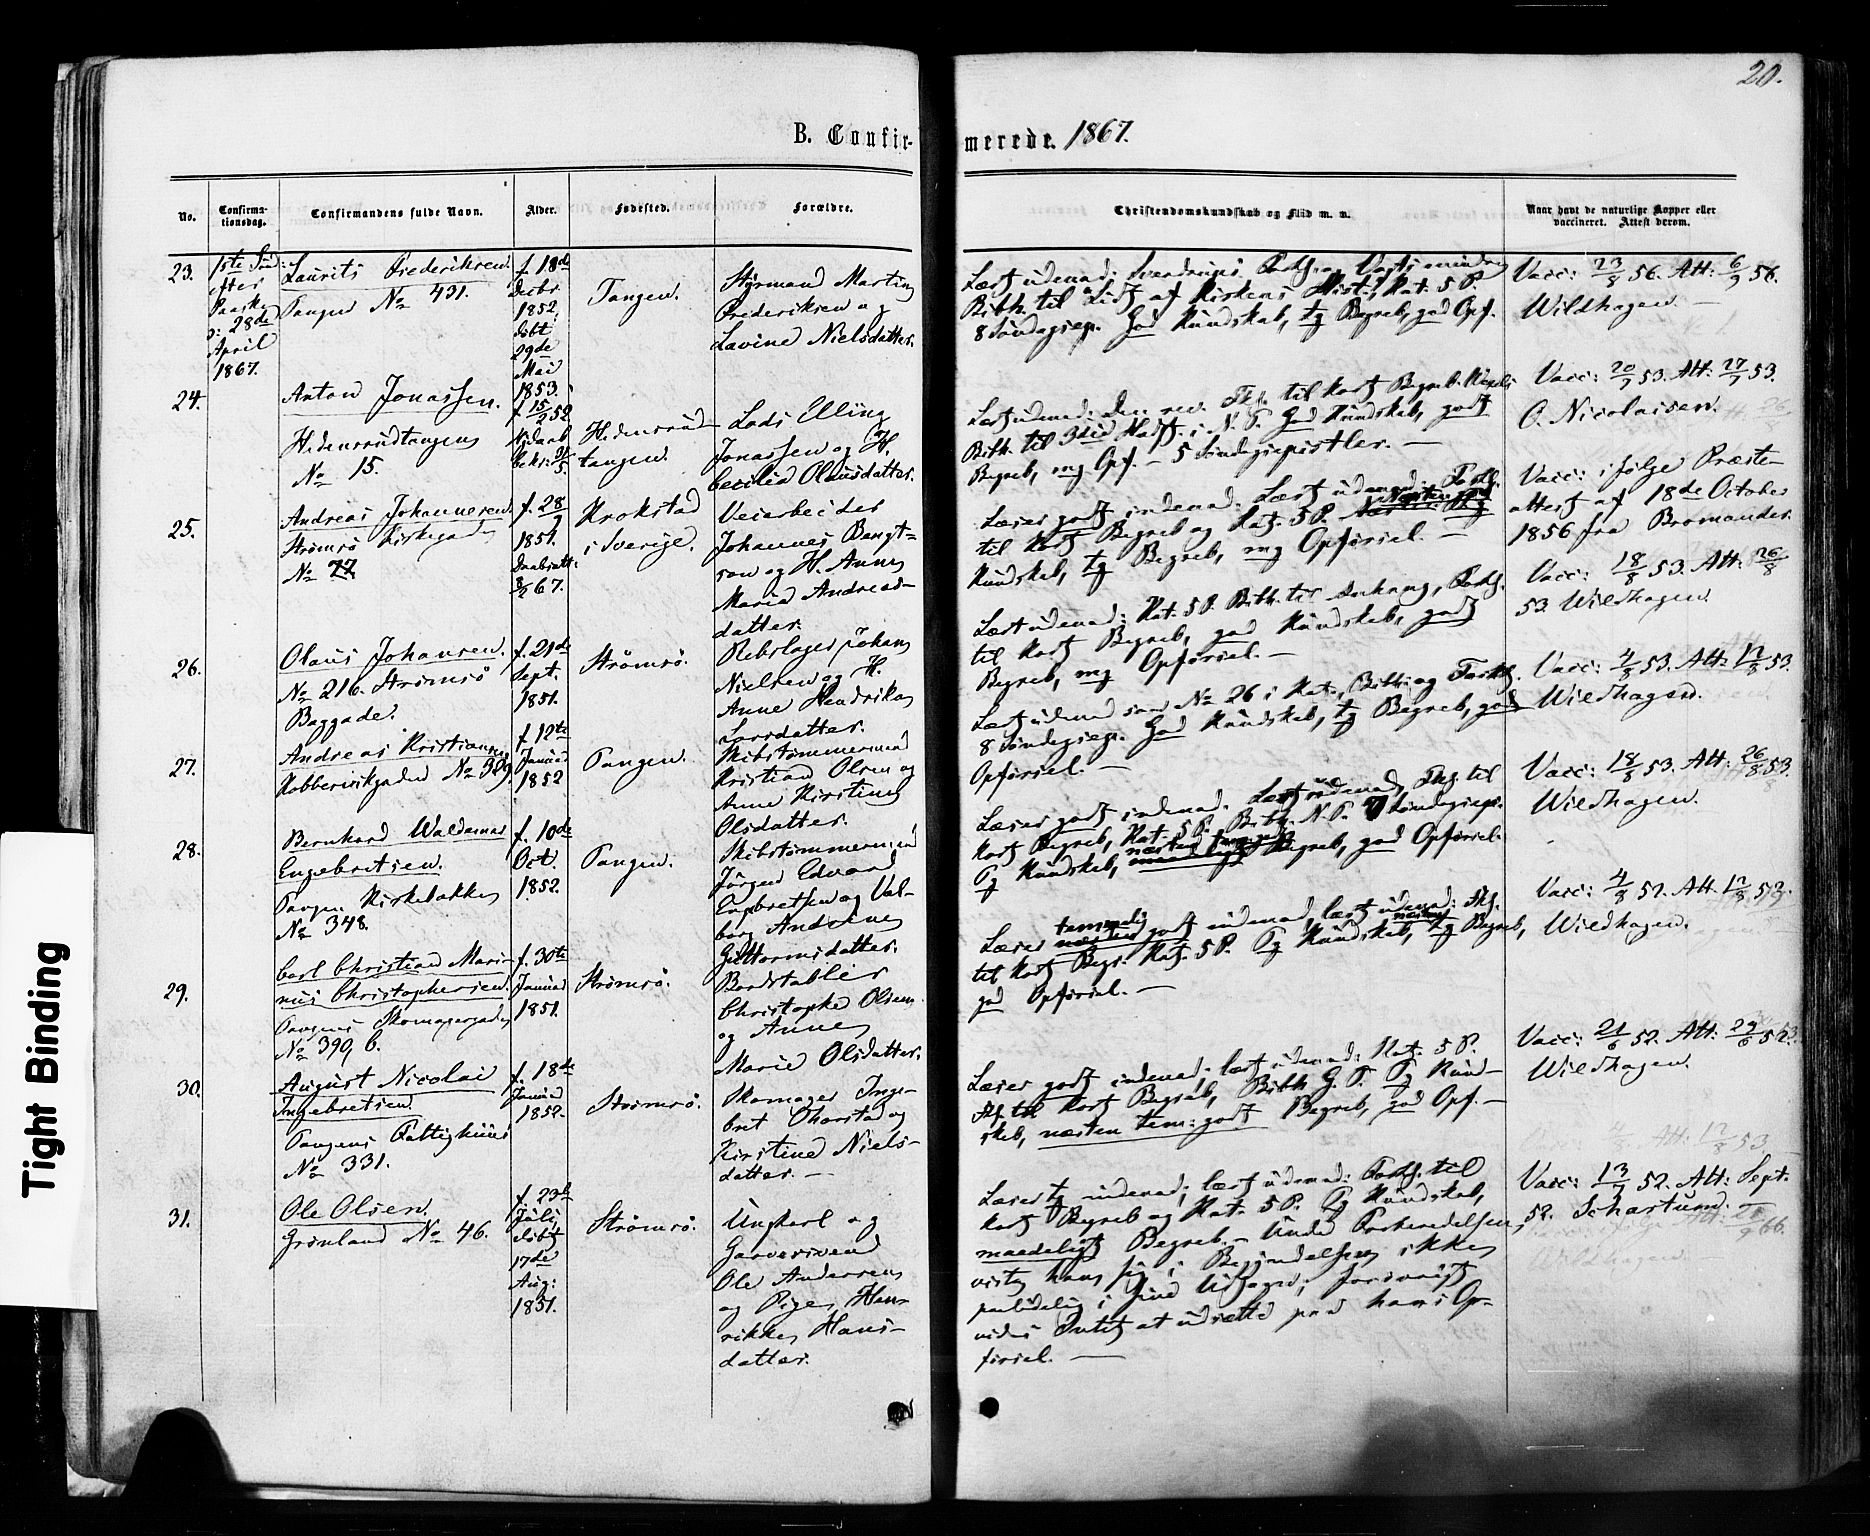 20.
B. Confir-
merede. 1867.
No.
Confirma-
tionsdag.
Confirmandens fulde Navn.
Alder.
Fødested.
Forældre.
Christendomskundskab og Flid m. v.
Naar havt de naturlige Kopper eller
vaccineret. Attest derom.
23.
1ste Sønd:
efter
Paaske
28de
April
1867.
Laurits Frederiksen.
Tangen No 431.
f. 18de
Decbr.
1852,
døbt
29de
Mai
1853.
Tangen.
Styrmand Martin
Frederiksen og
Lavine Nielsdatter.
Læst udenad: Sverdrups Forkl. og Vogts mindre
Bibh. til Lidt af Kirkens Hist., Kat. 5 P.
8 Søndagsep. God Kundskab, tg Begreb, god Opf.
Vacc: 23/8 56. Att: 6/9 56.
Wildhagen. —
24.
Anton Jonassen.
Hedensrudtangen
No 15.
f. 15/2 52
Hedensrud-
tangen.
Lods Elling
Jonassen og H.
Cecilia Olausdatter.
Læst udenad: den rev. Fkl. til kort Begreb.
Bibh. til 3die Hadft. i N. T. God Kundskab, godt
Begreb, mg Opf. — 5 Søndagsepistler. —
Vacc: 20/7 53. Att: 27/7 53.
O. Nicolaisen.
25.
Andreas Johannesen.
Strømsø Kirkegade
No 77
f. 28/9
1851.
Daabsatt:
8/2 67.
Krokstad
i Sverige.
Veiarbeider
Johannes Bengt-
son og H. Anne
Maria Andreas-
datter.
Læser godt indenad. Læst udenad: Forkl.
til kort Begreb og Kat. 5 P. Næsten
Kundskab, tg Begreb, mg Opførsel. —
Vacc: ifølge Præste-
attest af 18de October
1856 fra Bromander.
26.
Olaus Johansen.
No 216. Strømsø
Baggade.
f. 21de
Sept.
1851.
Strømsø.
Rebslager Johan
Nielsen og H.
Anne Hendrikke
Larsdatter.
Læst udenad: Kat. 5 P. Bibh. til Anhang, Forkl.
til kort Begreb, god Kundskab, godt
Begreb, mg Opførsel. —
Vacc: 18/8 53. Att: 26/8
53. Wildhagen.
27.
Andreas Kristiansen
Kobbervikgaden No 329
f. 12te
Januar
1852
Tangen.
Skibstømmermand
Kristian Olsen og
Anne Kirstine
Olsdatter.
Læst udenad som No 26 i Kat., Bibh. og Forkl.
8 Søndagsep. God Kundskab, tg Begreb, god
Opførsel. —
Vacc: 4/8 53. Att: 12/8 53.
Wildhagen.
28.
Bernhard Waldemar
Engebretsen.
Tangen Kirkebakke
No 348.
f. 10de
Oct.
1852.
Tangen.
Skibstømmermand
Jørgen Edvard
Engbretsen og Val-
borg Andrine
Guttormsdatter.
Læser godt indenad. Læst udenad, Fkl. til
kort Begreb, Kat. 5 P. Bibh. N. T. 7 Søndagsepi.
Tg Kundskab, næsten Begreb, god Opførsel.
Vacc: 18/8 53. Att: 26/8 53.
Wildhagen.
29.
Carl Christian Mari-
nus Christophersen.
Tangens Skomagergade
No 390, b.
f. 30te
Januar
1851.
Strømsø.
Bordstabler
Christophe Olsen
og Anne
Marie Olsdatter.
Læser temmelig godt indenad, læst udenad: Fkl.
til kort Begr. Kat. 5 P. Tg Kundskab, næsten tg Begreb,
god Opførsel. —
Vacc: 4/8 52. Att. 12/8 53.
Wildhagen.
30.
August Nicolai
Ingebretsen.
Tangens Fattighuus
No 331.
f. 18de
Januar
1852.
Strømsø.
Skomager Inge-
bret Thorstad og
Kirstine Niels-
datter. —
Læser godt indenad; læst udenad: Kat. 5 P.
Fkl til kort Begreb, Bibh. G. T. Tg Kund-
skab, næsten tem: godt Begreb, god Opf. —
Vacc: 21/6 52. Att: 29/6 52
Wildhagen.
31.
Ole Olsen.
Grønland No 46.
f. 23de
Juli
døbt
17de
Aug:
1851.
Strømsø.
Ungkarl og
Garversvend
Ole Andersen
og Pige Hen-
rikke Hans-
datter.
Læser tg indenad; læst udenad: Forkl. til
kort Begreb og Kat. 5 P. Tg Kundskab,
maadeligt Begreb. — Under Forberedelsen
viste han sig i Begyndelsen ikke
paalidelig i sine Udsagn; forøvrigt
vides Intet at udsætte paa hans Op-
førsel. —
Vacc: 13/7 52. Att: Sept.
52. Schartum.
Tight Binding